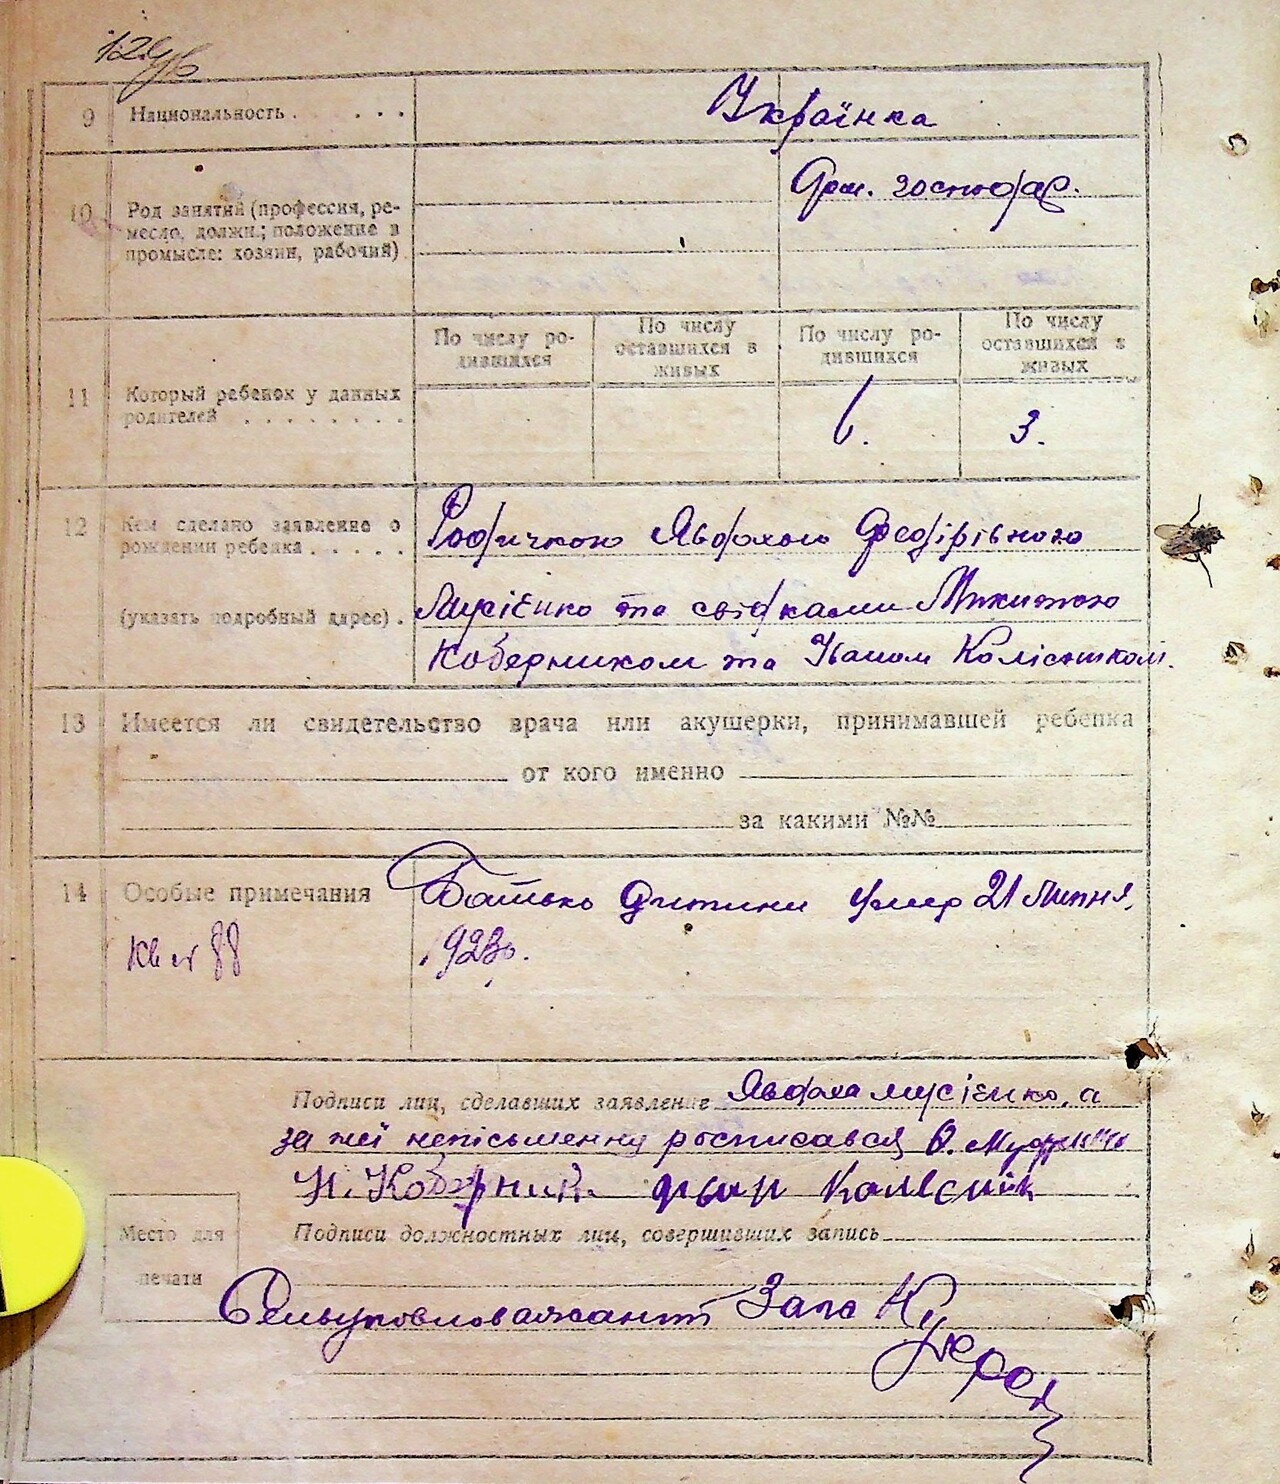 9 Национальность . . . . Українка
10 Род занятий (профессия, ре-
месло, должн.; положение в
промысле: хозяин, рабочий)
господар.
11 Который ребенок у данных
родителей . . . . . . . .
По числу ро-
дившихся
По числу
оставшихся в
живых
По числу ро-
дившихся
По числу
оставшихся в
живых
6. 3.
12 Кем сделано заявление о
рождении ребенка . . . . .
(указать подробный адрес) .
Родичкою Явдохою Федірівною
Мусієнко та свідками Микитою
Коберником та Іваном Колісником.
13 Имеется ли свидетельство врача или акушерки, принимавшей ребенка
от кого именно
за какими №№
14 Особые примечания
Батько дитини умер 21 липня,
1923р.
Подписи лиц, сделавших заявление Явдоха Мусієнко, а
за неї непісьменну росписався О.
Н. Коберник. Колісник
Подписи должностных лиц, совершивших запись
Место для
печати
Сельуповноважений